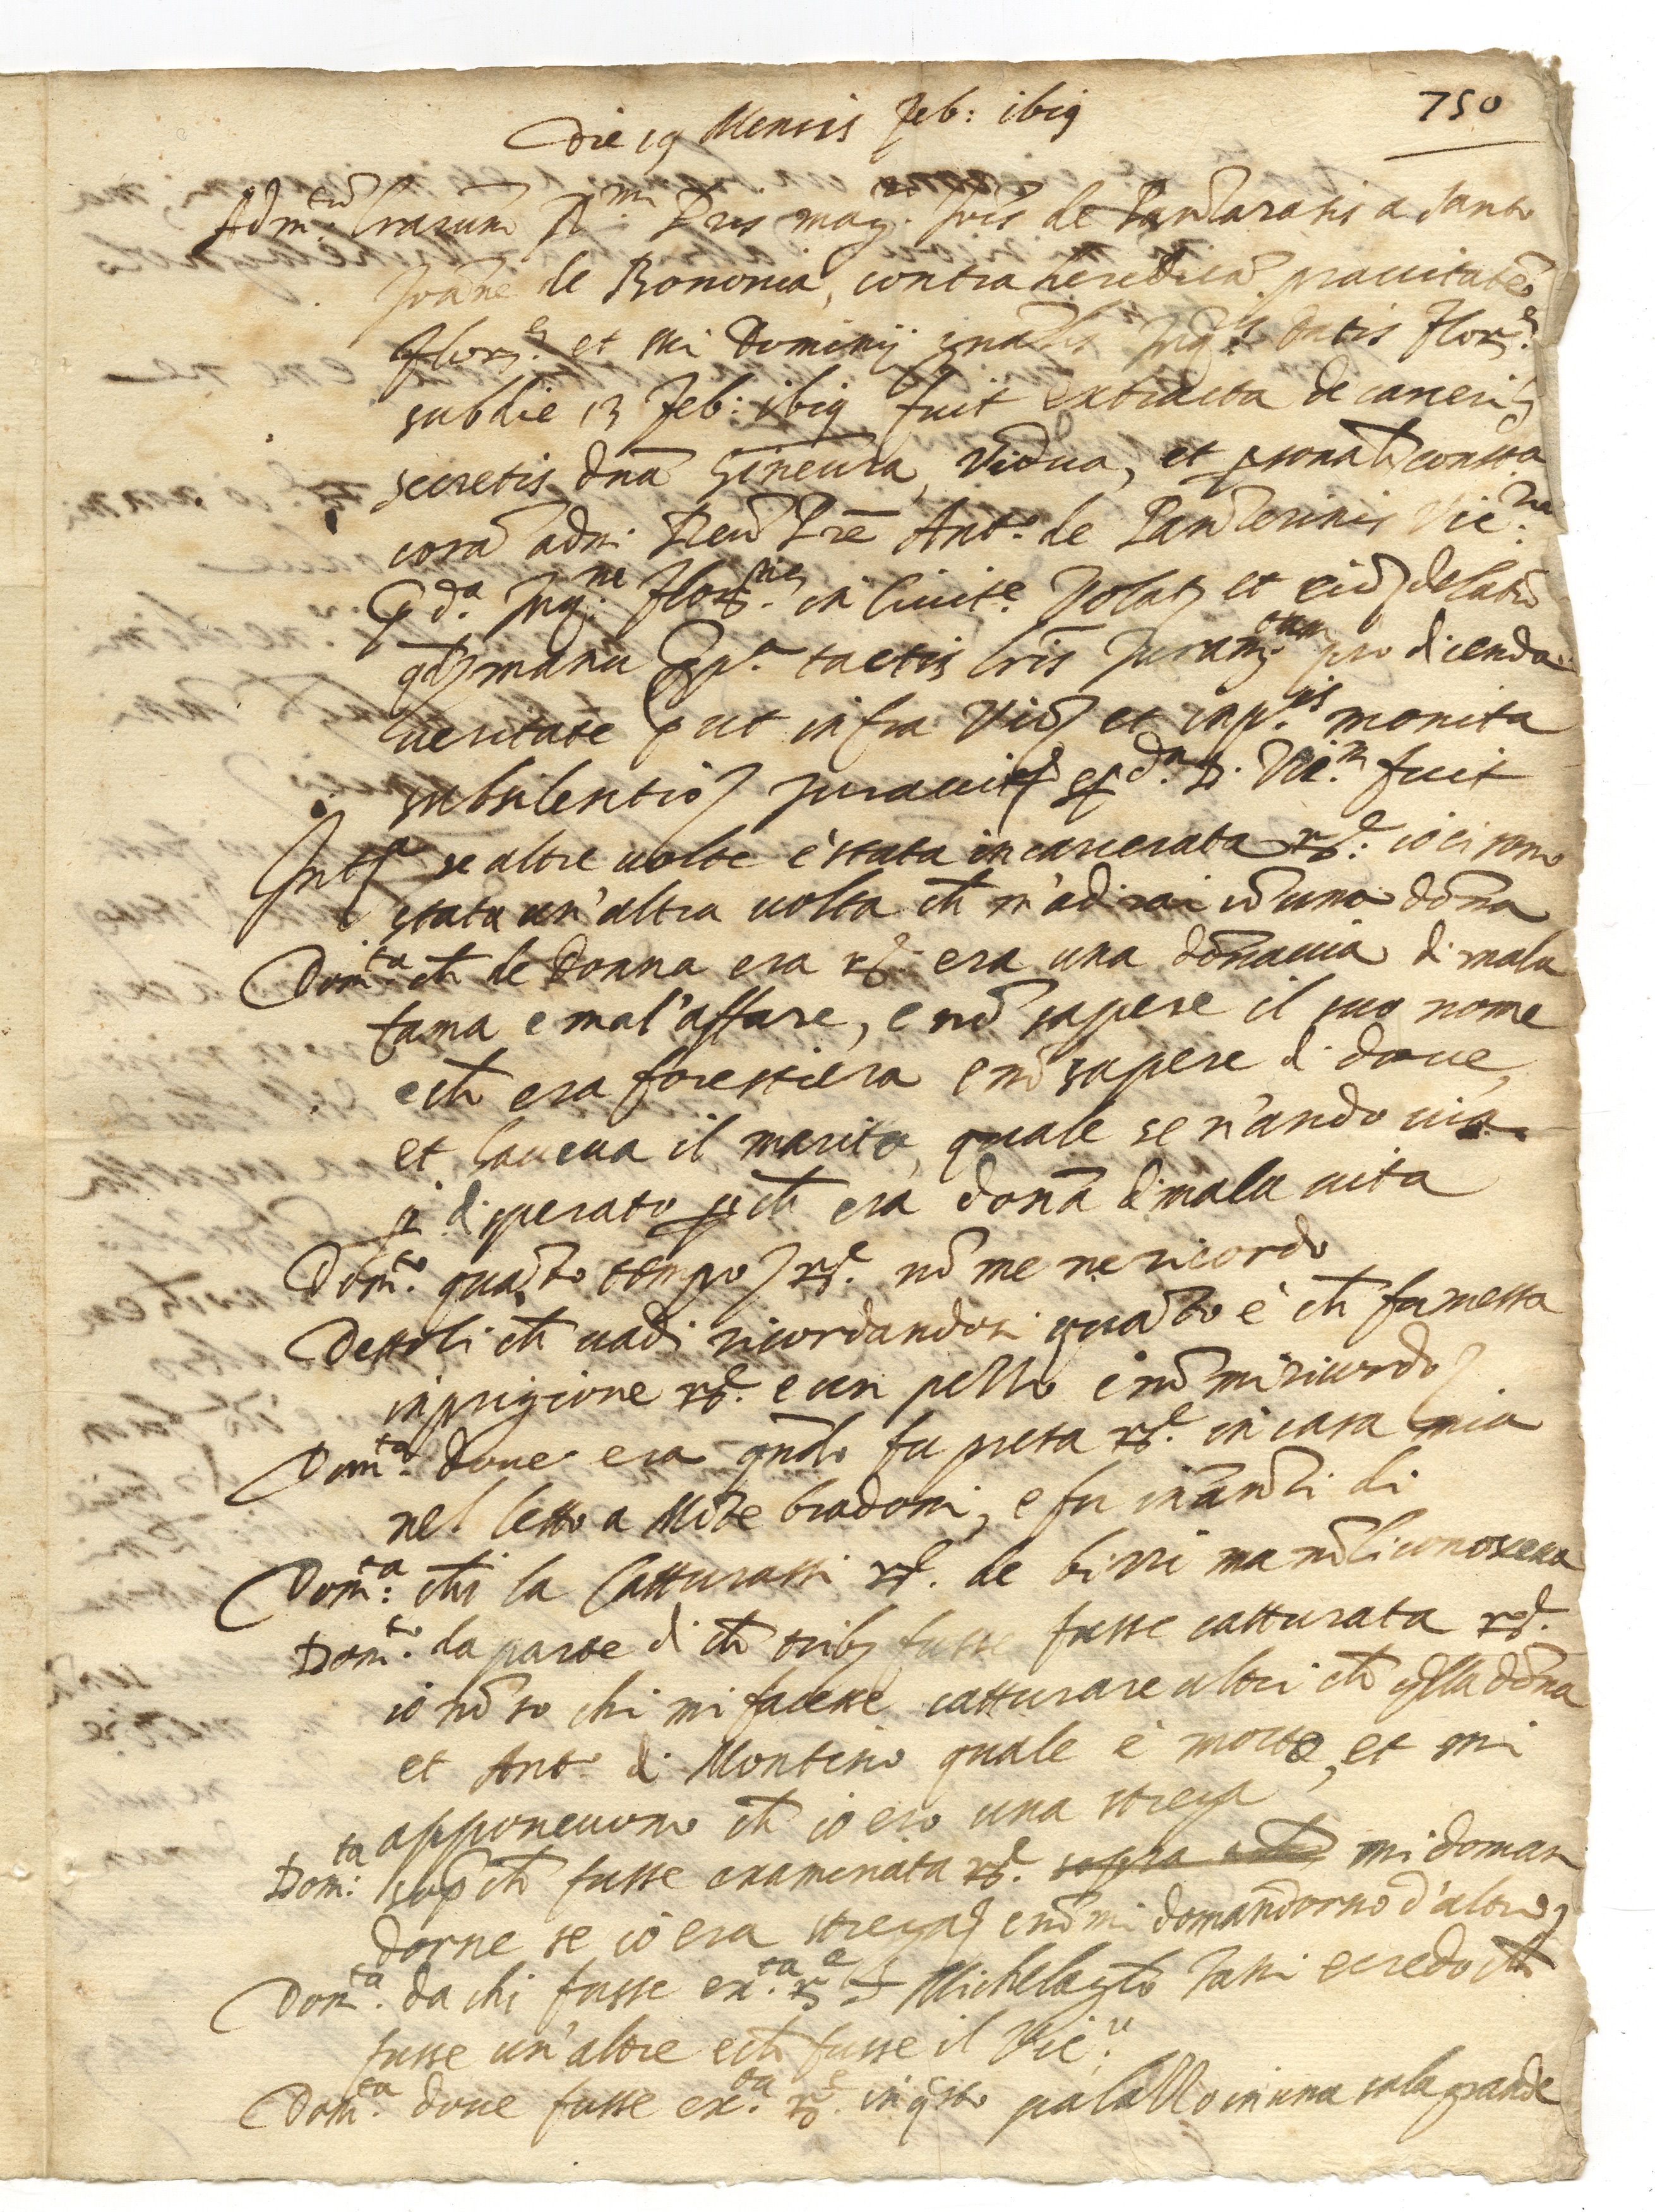 750
Die 19 Mensis Feb: 1619
Adm.^tu l'rarum R^mi P'ris mag.^ri Jo'is de Pand'arasis a Santo
Joa'ne de Bononia, contra heretica' prauitate'
Flor.^e et sui Dominij g'nalis Inq.^is datis Flor.^e
sub die 13 Feb: 1619 fuit extracta de carcerib;
secretis d'na Gineura, vidua, et p'sonal'r const.a
cora' adm. Reu' P're Ant.° de Vic.^rio
p.d.^i Inq.^ne Flor.^tie in Ciuit.^e Volat; et ei delato
p' manu p.p.^a tactis l'ris Juram.^tum pro dicenda
ueritate p'ut infra vi; et inp.^is monita
sub silentio; Jurauit; et d.^a D. Vic.^m fuit
Int; se altre uolte è stata incarcerata r^e: io ci sono
stata un'altra uolta ch' m'adirai co' una do'na
Dom.^ta ch' de Donna era r^e. era una do'naccia di mala
fama e mal'affare, e no' sapere il suo nome
e ch' era forestiera e no' sapere di doue,
et haueua il marito, quale se n'andò uia
p' disperato p'ch' era dona' di mala uita
Dom.^to qua'to tempo; r^e. no' me ne ricordo
Dettoli ch' uadi ricordandosi qua'to è ch' fu messa
in prigione r^e. e un pezzo e no' mi ricordo;
Dom.^ta doue era qu'do fu presa r^e. in casa mia
nel letto a Mo'te bradoni, e fu ina'nzi di
Dom.^ta: chi la Catturassi r^e. de birri ma no' li conosceua
Dom.^to. da parte di ch' trib; fusse fusse catturata r^e.
io no' so chi mi facesse catturare altri ch' q'lla do'na
et Ant.° di Montino quale è morto, et mi
apponeuono ch' io ero una strega
Dom:^ta sop' ch' fusse examinata r^e. sopra mi doman
dorne se io era strega; e no' mi domandorno d'altro;
Dom.^ta. da chi fusse ex.^ta r^e Michelag'lo e credo ch'
fusse un'altro e ch' fusse il Vic.^io
Dom.^ta doue fusse ex.^ta r^e. in q'sto palazzo in una sala grande